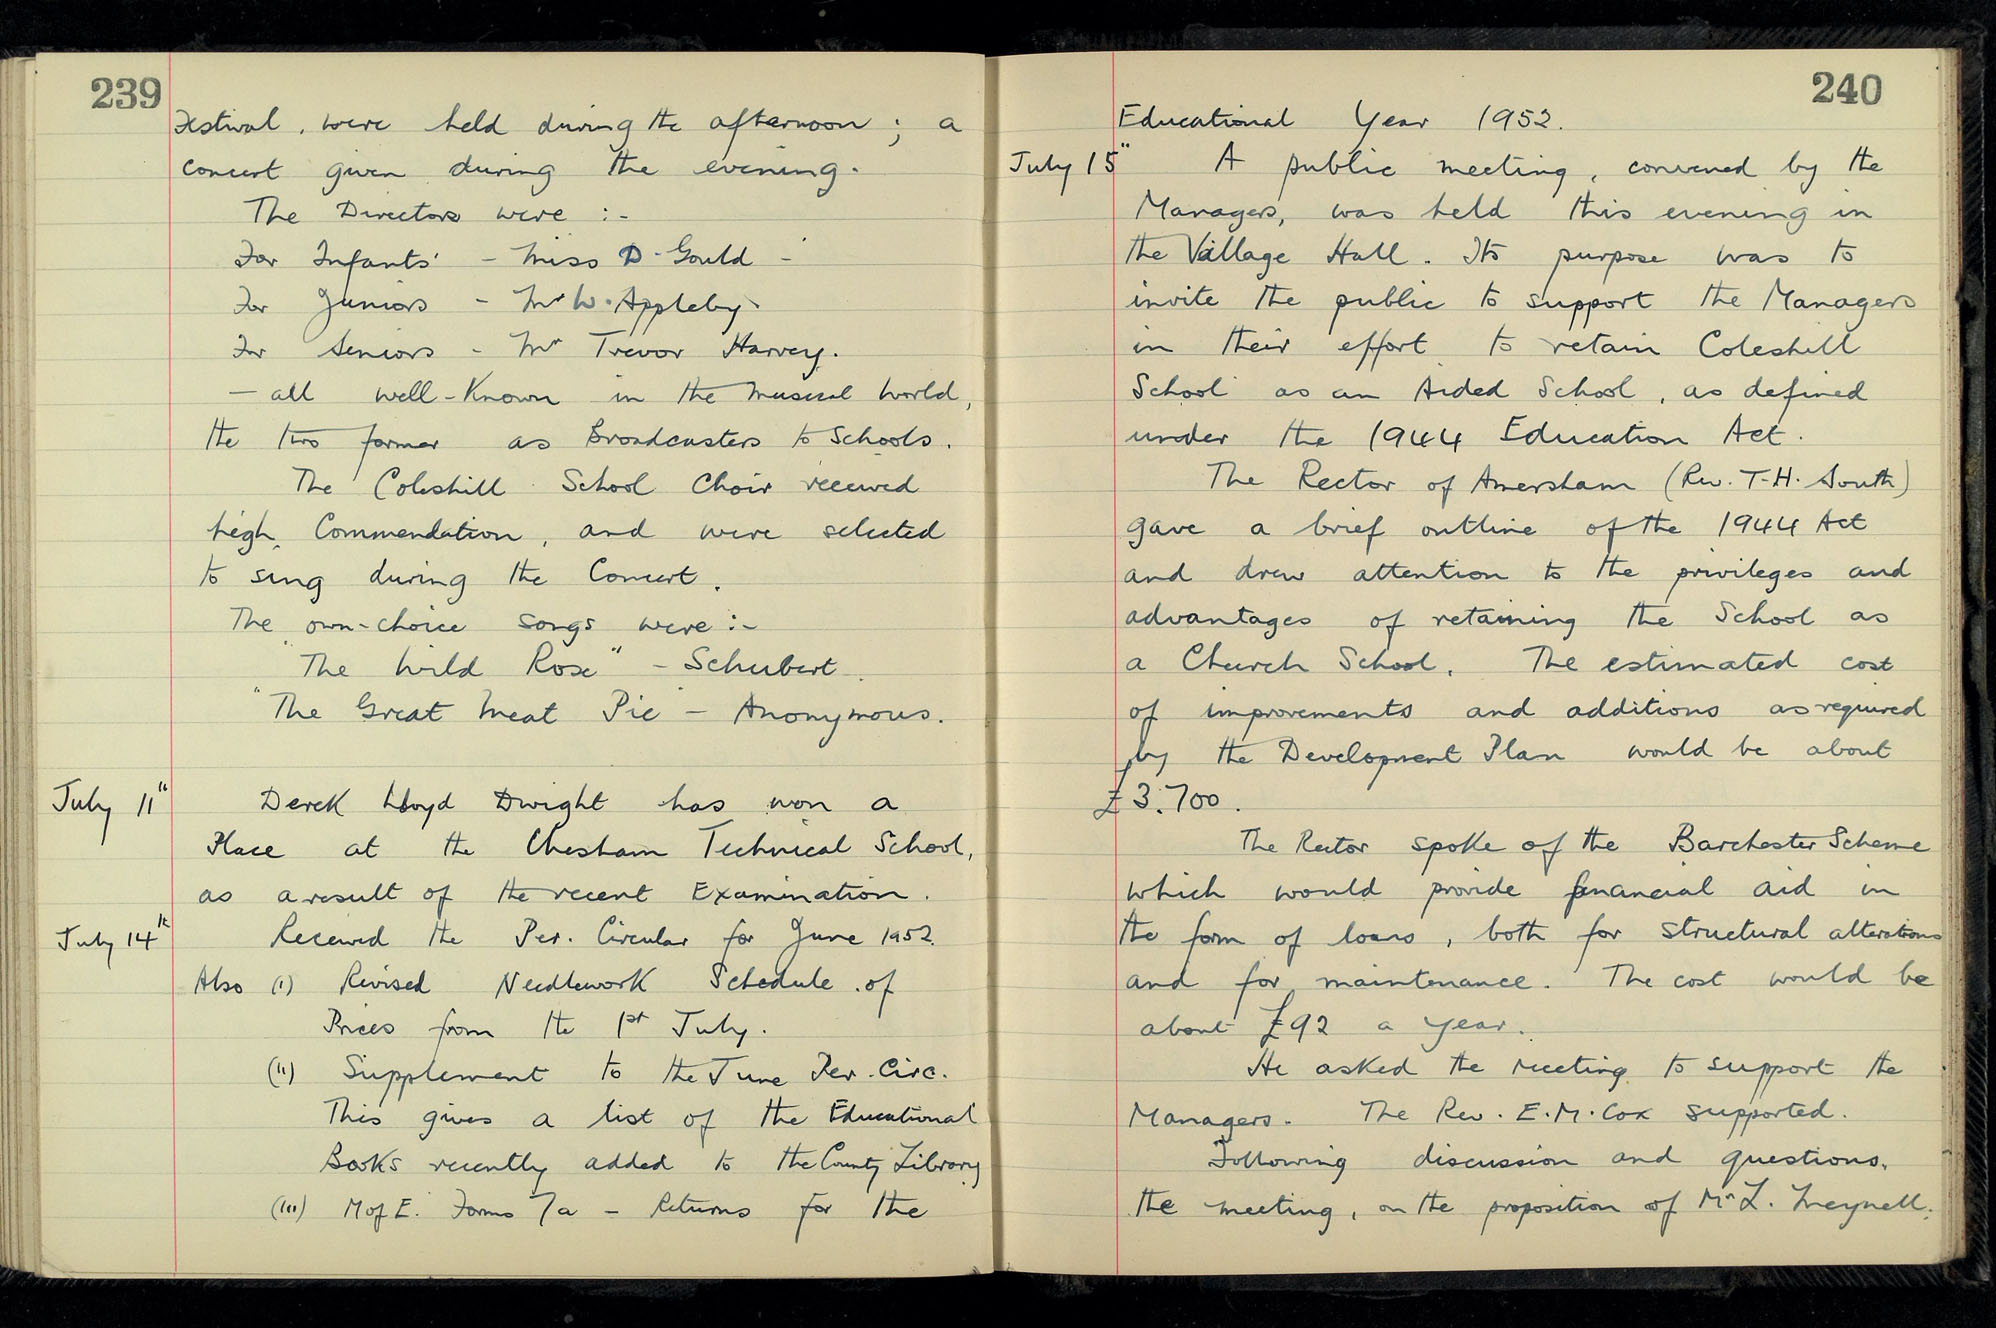 239
Festival, were held during the afternoon; a
concert given during the evening.
The Directors were :-
For Infants' - Miss D. Gould -
For Juniors - Mr W. Appleby.
For Seniors - Mr Trevor Harvey.
- all well-known in the musical world,
the two former as Broadcasters to Schools.
The Coleshill School Choir received
high Commendation, and were selected
to sing during the Concert.
The own-choice songs were :-
"The Wild Rose" - Schubert.
"The Great Meat Pie - Anonymous.
July 11th Derek Lloyd Dwight has won a
Place at the Chesham Technical School,
as a result of the recent Examination.
July 14th Received the Per. Circular for June 1952.
Also (i) Revised Needlework Schedule of
Prices from the 1st July.
(ii) Supplement to the June Per. Circ.
This gives a list of the Educational
Books recently added to the County Library
(iii) M of E. Forms 7a - Returns for the
240
Educational Year 1952.
July 15" A public meeting, convened by the
Managers, was held this evening in
the Village Hall. Its purpose was to
invite the public to support the Managers
in their effort to retain Coleshill
School as an Aided School, as defined
under the 1944 Education Act.
The Rector of Amersham (Rev. T.H. South)
gave a brief outline of the 1944 Act
and drew attention to the privileges and
advantages of retaining the School as
a Church School. The estimated cost
of improvements and additions as required
by the Development Plan would be about
£3.700.
The Rector spoke of the Barchester Scheme
which would provide financial aid in
the form of loans, both for structural alterations
and for maintenance. The cost would be
about £92 a year.
He asked the meeting to support the
Managers. The Rev. E.M. Cox supported.
Following discussion and questions,
the meeting, on the proposition of Mr L.